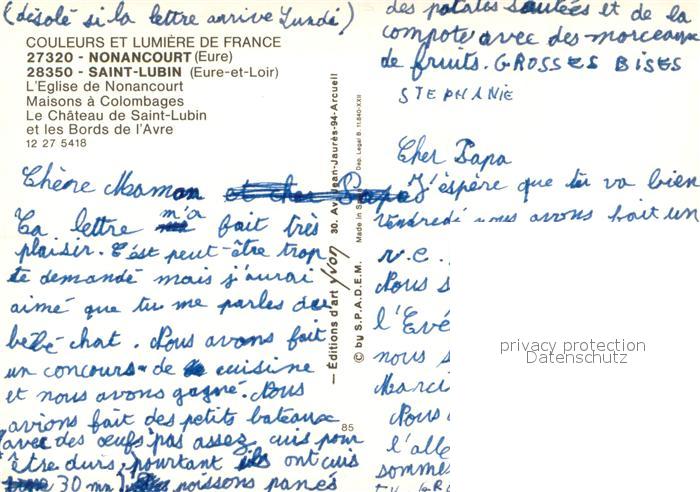 (désolé si la lettre arrive Lundi)
COULEURS ET LUMIÈRE DE FRANCE
27320 - NONANCOURT (Eure)
28350 - SAINT-LUBIN (Eure-et-Loir)
L'Eglise de Nonancourt
Maisons à Colombages
Le Château de Saint-Lubin
et les Bords de l'Avre
12 27 5418
Chère Maman et cher Papa
Ta lettre m'a fait très
plaisir. C'ést peut-être trop
te demandé mais j'aurai
aimé que tu me parles du
bébé chat. Nous avons fait
un concours de cuisine
et nous avons gagné. Nous
avions fait des petits bateaux
avec des œufs pas assez cuis pour
être durs, pourtant ils ont cuis
30 mn) poissons panés
85
— Éditions d'art yvon 30, Av. Jean-Jaurès-94-Arcueil
© by S.P.A.D.E.M. Made in Dep. Legal B. 11.840-XXII
des patates sautées et de la
compote avec des morceaux
de fruits. GROSSES BISES
STEPHANIE
Cher Papa
J'espère que tu va bien
Vendredi nous avons fait un
v.e.
Nous s
l'Evé
nous s
Marci
Nous
l'alle
sommes
privacy protection
Datenschutz